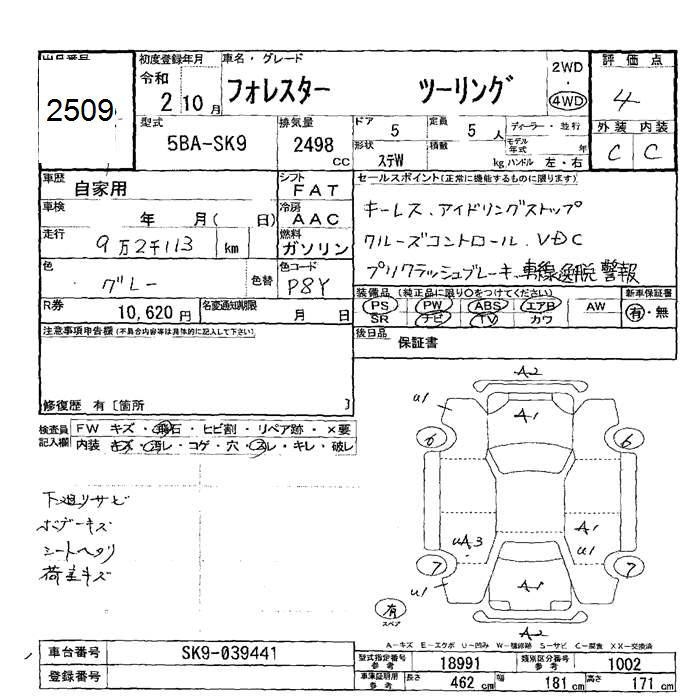 出品番号 初度登録年月 車名・グレード 評価点
2509 令和 2 10月 フォレスター ツーリング 2WD・4WD 4
型式 排気量 ドア 定員 ディーラー・並行 外装 内装
5BA-SK9 2498 cc 5 5人 モデル年式 年 C C
形状 積数 kg ハンドル 左・右
ステW
車歴 自家用 シフト FAT セールスポイント(正常に機能するものに限ります)
車検 年 月( 日) 冷房 AAC キーレス、アイドリングストップ
走行 9万2千113 km 燃料 ガソリン クルーズコントロール、VDC
色 グレー 色替 色コード P8Y プリクラッシュブレーキ、車線逸脱警報
装備品(純正品に限り○をつけてください) 新車保証書
PS PW ABS エアB AW 有・無
SR ナビ TV カワ
R券 10,620円 名変通知期限 月 日
後日品 保証書
注意事項申告欄(不具合内容等は具体的に記入して下さい)
修復歴 有〔箇所 〕
検査員記入欄 FW キズ・飛石・ヒビ割・リペア跡・×要
内装 キズ・汚レ・コゲ・穴・スレ・キレ・破レ
下廻りサビ
ボデーキズ
シートヘタリ
荷室キズ
A2
U1 A1
6 6
UA3 A1
U1
7 A1 7
U1
有
スペア
A2
A-キズ E-エクボ U-凹み W-補修跡 S-サビ C-腐食 XX-交換済
車台番号 SK9-039441
型式指定番号 参考 18991 類別区分番号 参考 1002
登録番号
車庫証明用 参考 長さ 462cm 幅 181cm 高さ 171cm